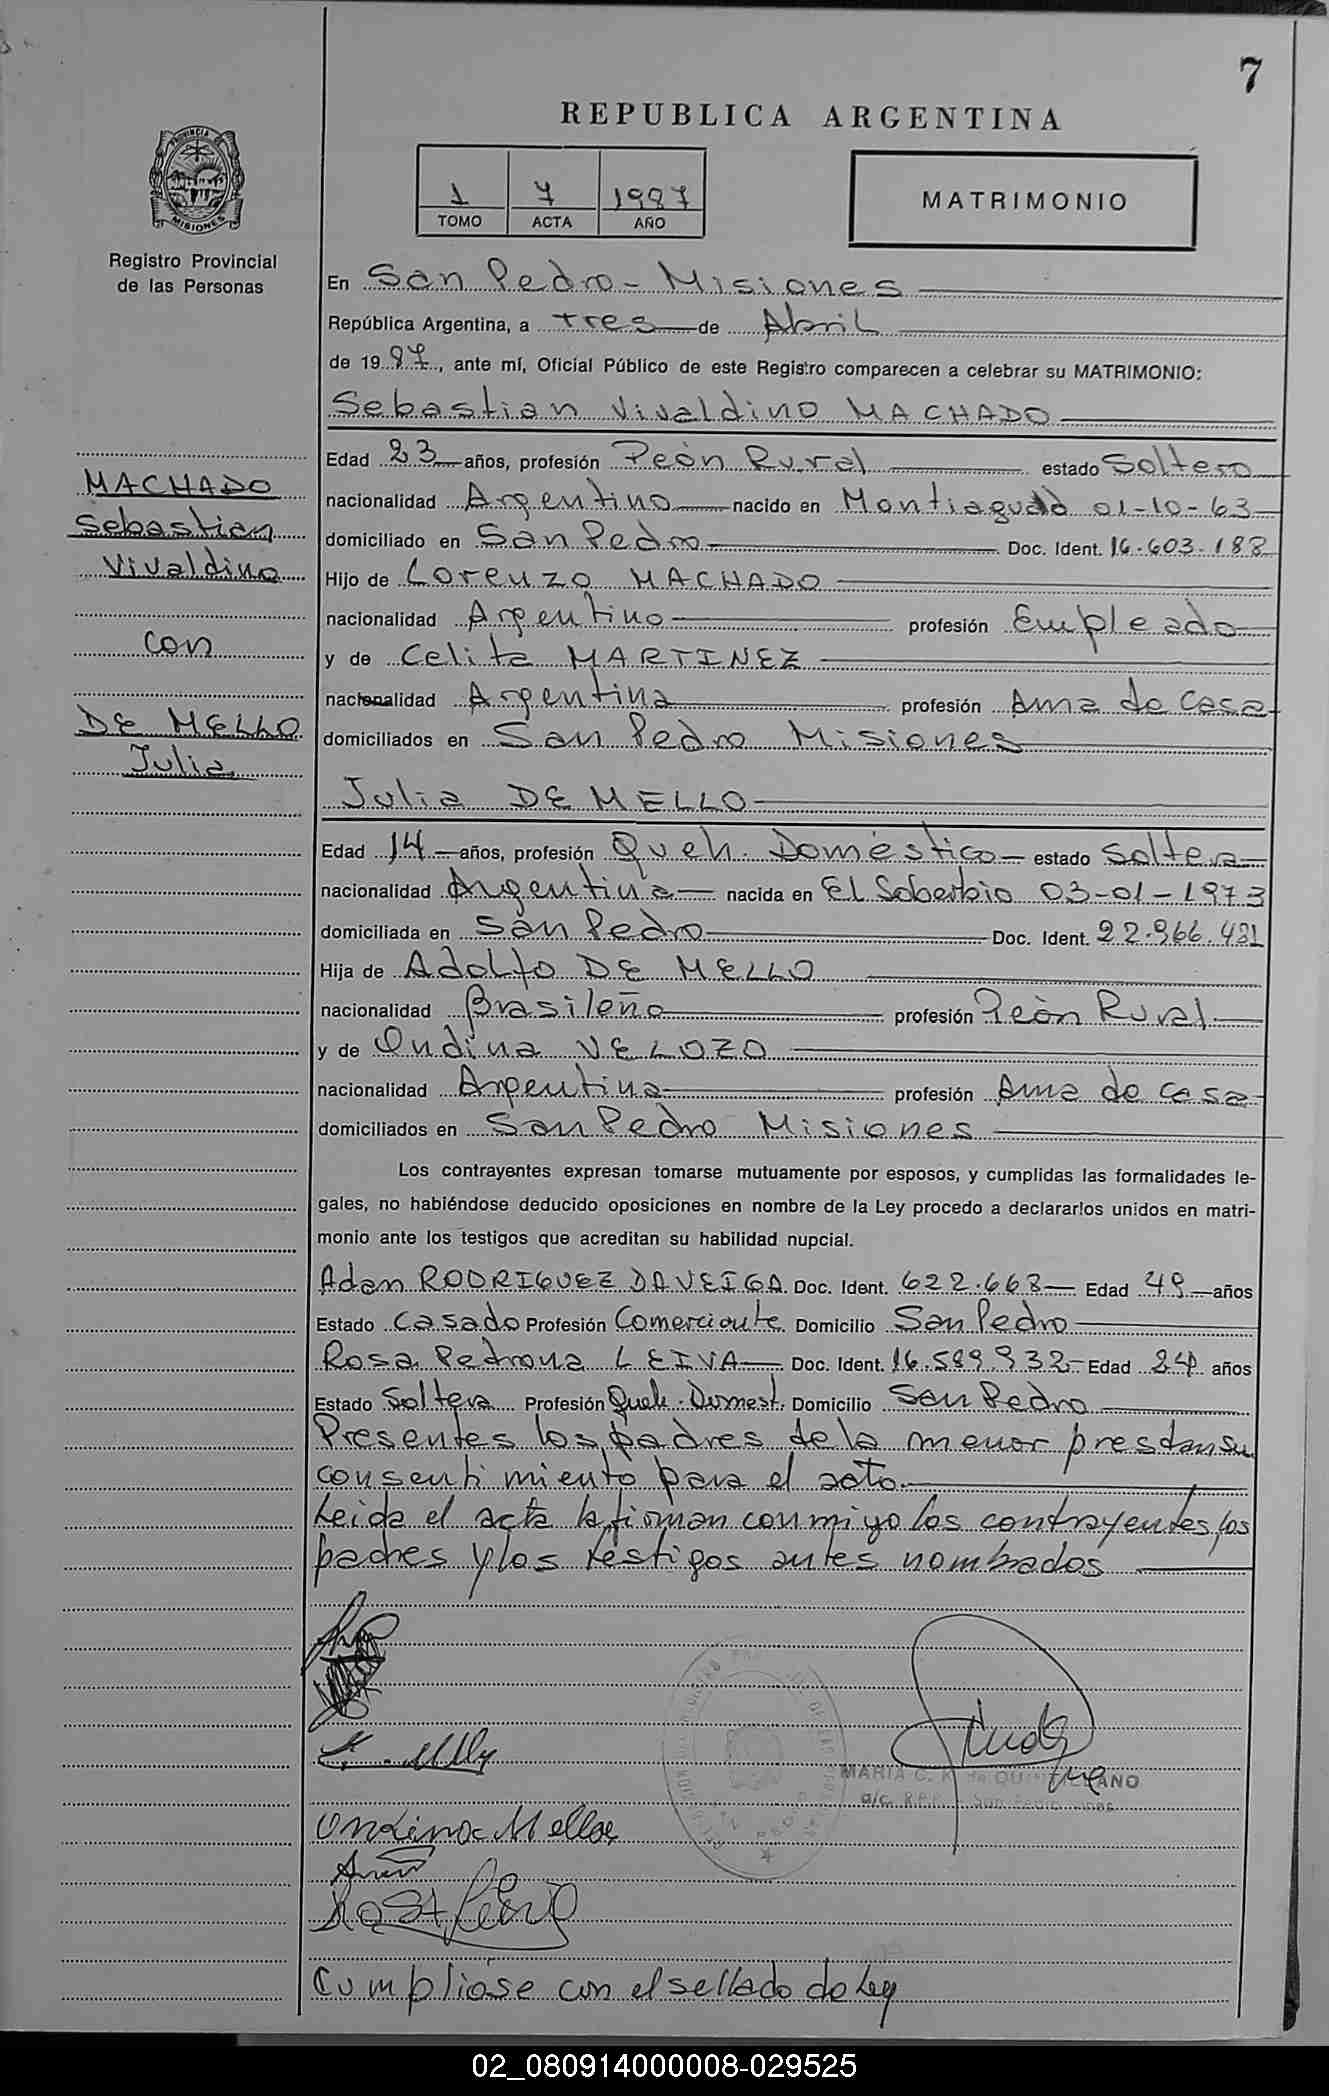 7
REPUBLICA ARGENTINA
1 7 1987
TOMO ACTA AÑO
MATRIMONIO
PROVINCIA DE
MISIONES
Registro Provincial
de las Personas
En San Pedro - Misiones
República Argentina, a tres de Abril
de 1987, ante mí, Oficial Público de este Registro comparecen a celebrar su MATRIMONIO:
Sebastian Vivaldino MACHADO
Edad 23 años, profesión Peón Rural estado Soltero
nacionalidad Argentino nacido en Montiagudo 01-10-63
domiciliado en San Pedro Doc. Ident. 16.603.188
Hijo de Lorenzo MACHADO
nacionalidad Argentino profesión Empleado
y de Celita MARTINEZ
nacionalidad Argentina profesión Ama de Casa
domiciliados en San Pedro Misiones
MACHADO
Sebastian
Vivaldino
con
DE MELLO
Julia
Julia DE MELLO
Edad 14 años, profesión Queh. Doméstico estado Soltera
nacionalidad Argentina nacida en El Soberbio 03-01-1973
domiciliada en San Pedro Doc. Ident. 22.966.431
Hija de Adolfo DE MELLO
nacionalidad Brasileño profesión Peón Rural
y de Ondina VELOZO
nacionalidad Argentina profesión Ama de casa
domiciliados en San Pedro Misiones
Los contrayentes expresan tomarse mutuamente por esposos, y cumplidas las formalidades le-
gales, no habiéndose deducido oposiciones en nombre de la Ley procedo a declararlos unidos en matri-
monio ante los testigos que acreditan su habilidad nupcial.
Adan RODRIGUEZ DAVEIGA Doc. Ident. 622.663 Edad 49 años
Estado Casado Profesión Comerciante Domicilio San Pedro
Rosa Pedrona LEIVA Doc. Ident. 16.599.932 Edad 24 años
Estado Soltera Profesión Queh. Domest. Domicilio San Pedro
Presentes los padres de la menor prestan su
consentimiento para el acto.
Leida el acta la firman conmigo los contrayentes, los
padres y los testigos antes nombrados
MARIA C. R. de
a/c. R.P.P. San Pedro
Ondina Mello
Cumpliose con el sellado de Ley
02_080914000008-029525